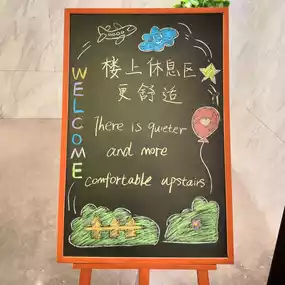 WELCOME
楼上休息区
更舒适
There is quieter
and more
comfortable upstairs